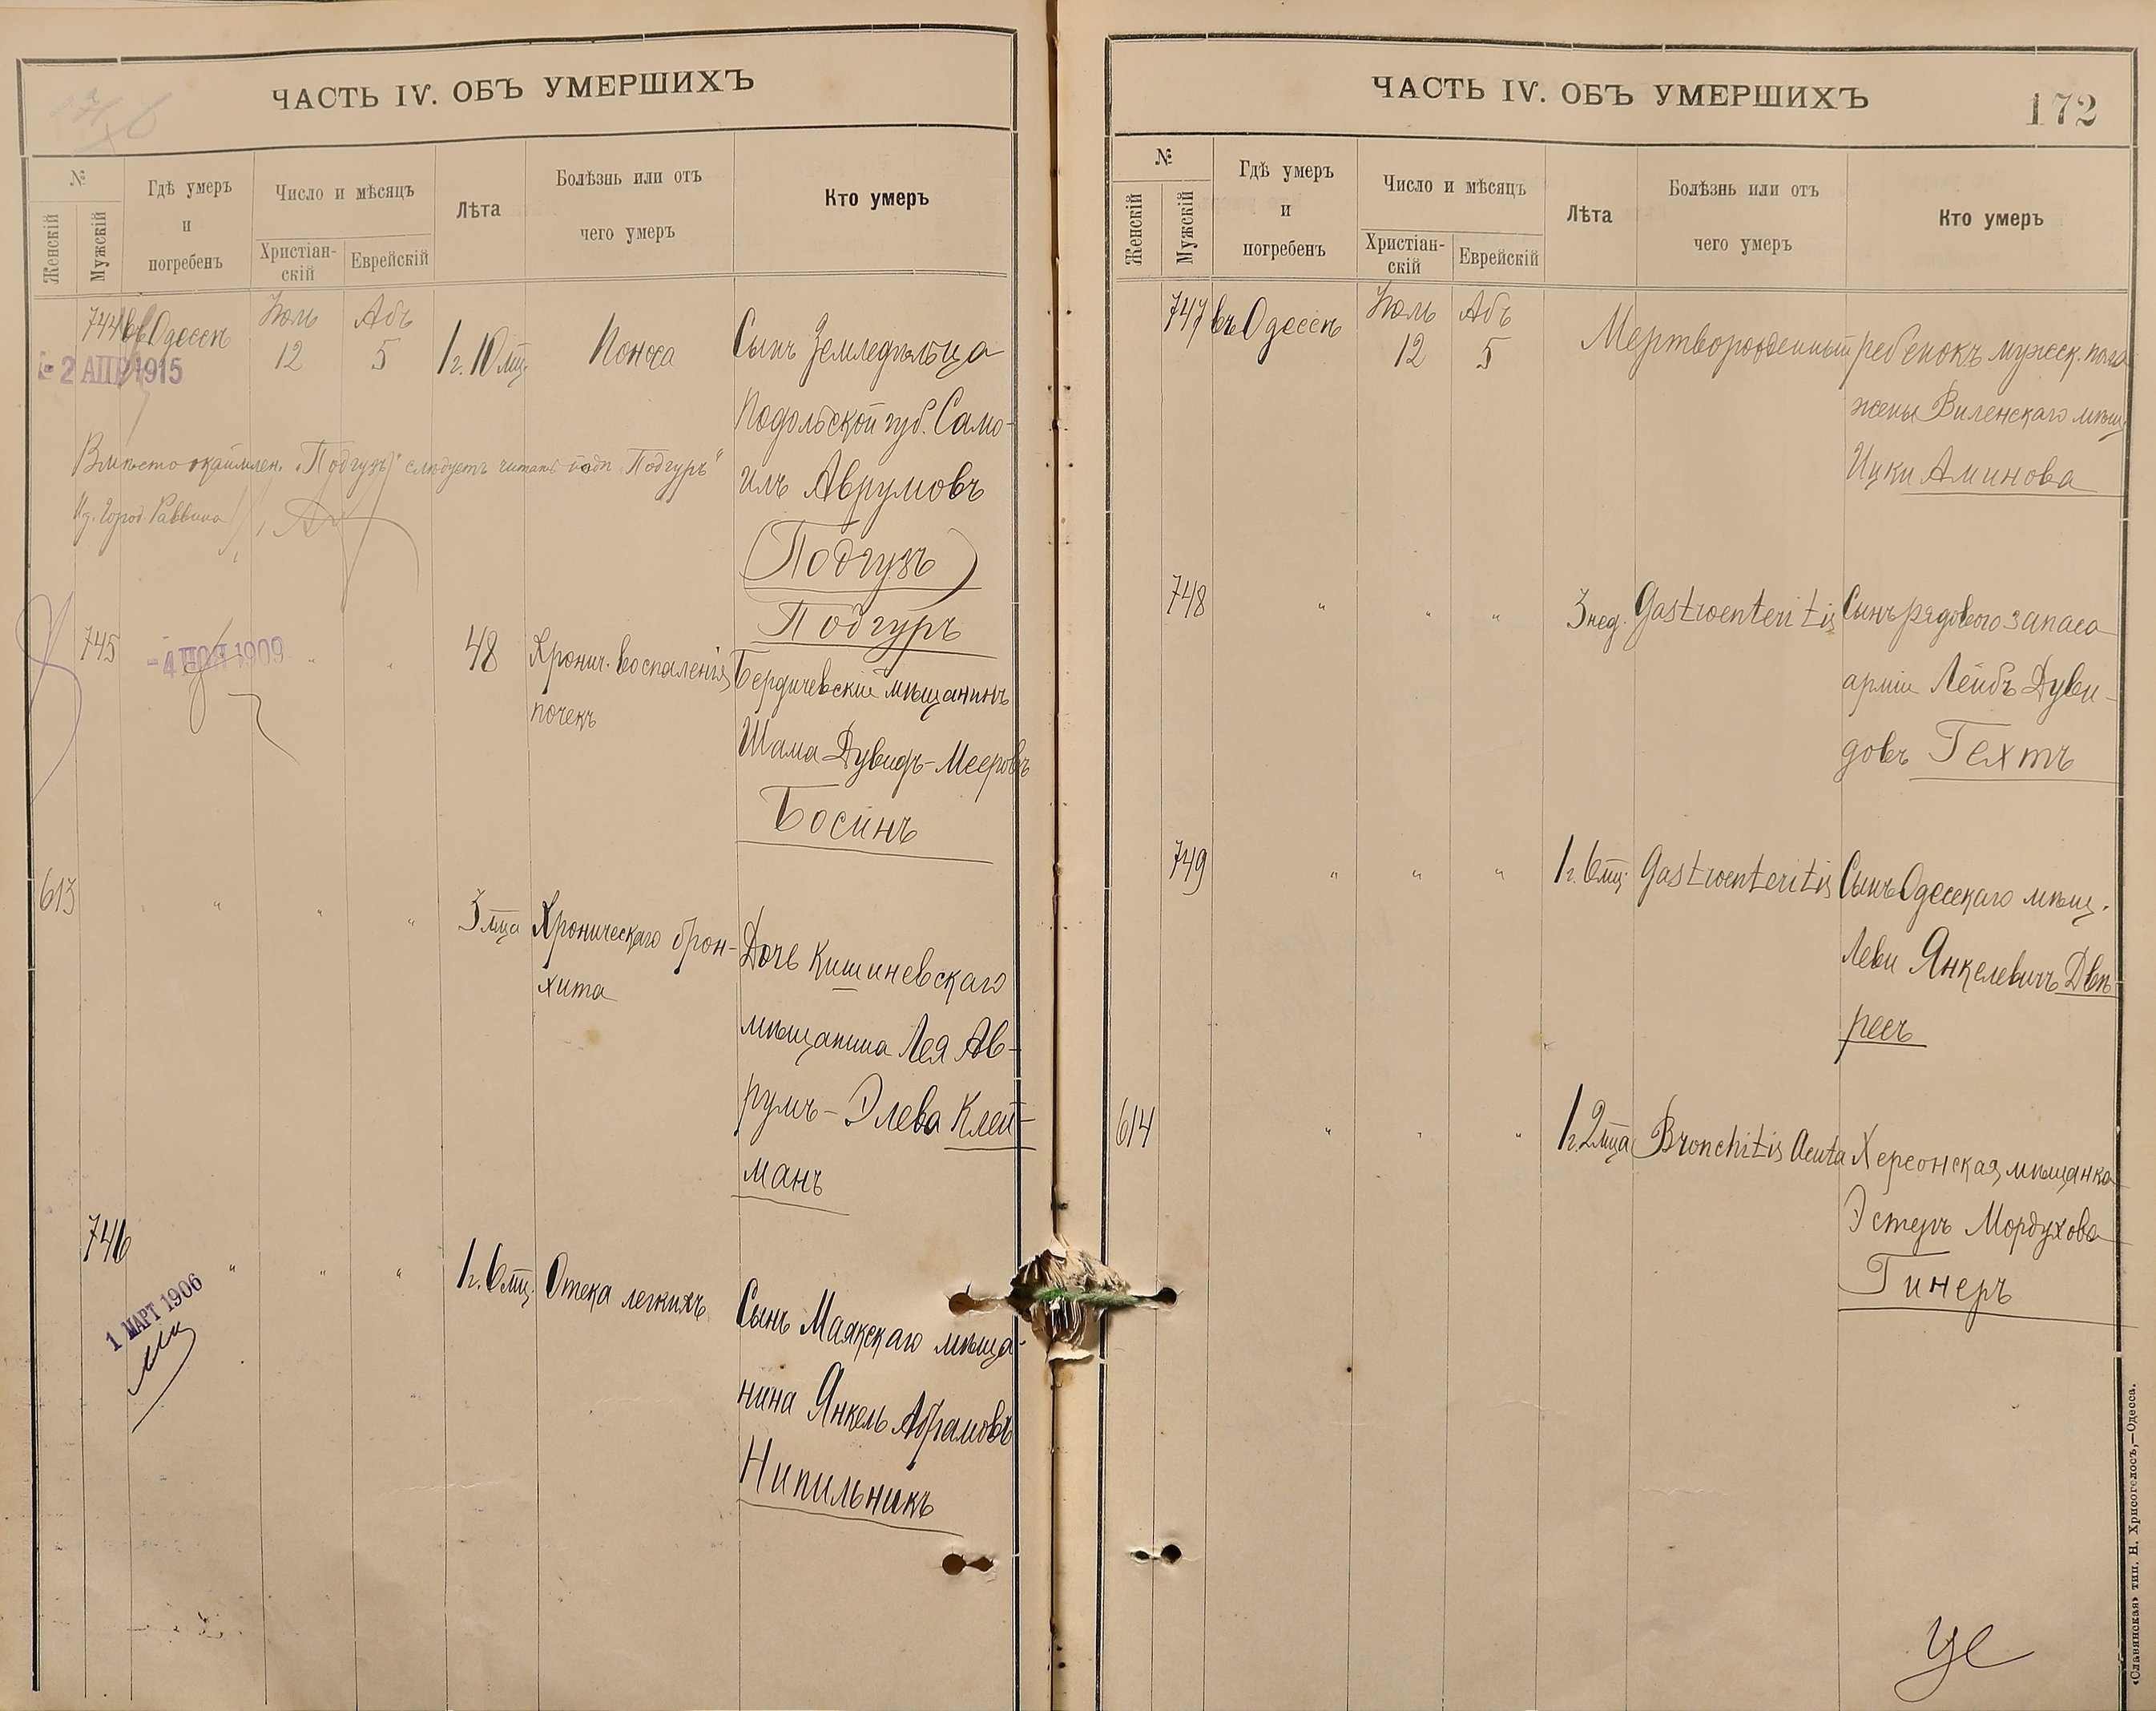 ЧАСТЬ IV. ОБЪ УМЕРШИХЪ
№
Женскій
Мужскій
Гдѣ умеръ
и
погребенъ
Число и мѣсяцъ
Христіан-
скій
Еврейскій
Лѣта
Болѣзнь или отъ
чего умеръ
Кто умеръ
744 въ Одессѣ Іюль 12 Абъ 5 1 г. 10 мц. Поноса Сынъ Земледѣльца
2 АПР 1915
Подольской губ. Само-
илъ Аврумовъ
(Подгузъ)
Подгуръ
Вмѣсто „Подгузъ" слѣдуетъ читать „Подгуръ"
Город. Раввина
745 " " 48 Хронич. воспаленія Бердичевскій мѣщанинъ
- 4 1909
почекъ
Шама Дувидъ-Мееровъ
Босинъ
613 " " " 3 мца Хроническаго брон-
хита
Дочь Кишиневскаго
мѣщанина Лея Ав-
румъ-Элева Клей-
манъ
746 " " " 1 г. 6 мц. Отека легкихъ
1 МАРТ 1906
Сынъ Маякскаго мѣща-
нина Янкель Абрамовъ
Нипильникъ
ЧАСТЬ IV. ОБЪ УМЕРШИХЪ
172
№
Женскій
Мужскій
Гдѣ умеръ
и
погребенъ
Число и мѣсяцъ
Христіан-
скій
Еврейскій
Лѣта
Болѣзнь или отъ
чего умеръ
Кто умеръ
747 въ Одессѣ Іюль 12 Абъ 5 Мертворожденный ребенокъ мужск. пола
жены Виленскаго мѣщ.
Ицки Аминова
748 " " " 3 нед. Gastroenteritis Сынъ рядового запаса
арміи Лейбъ Дуви-
довъ Гехтъ
749 " " " 1 г. 6 мц. Gastroenteritis Сынъ Одесскаго мѣщ.
Леви Янкелевичъ Двѣ
ресъ
614 " " " 1 г. 2 мца Bronchitis Acuta Херсонская мѣщанка
Эстеръ Мордухова
Гинеръ
«Славянская» тип. Н. Хрисогелосъ,—Одесса.